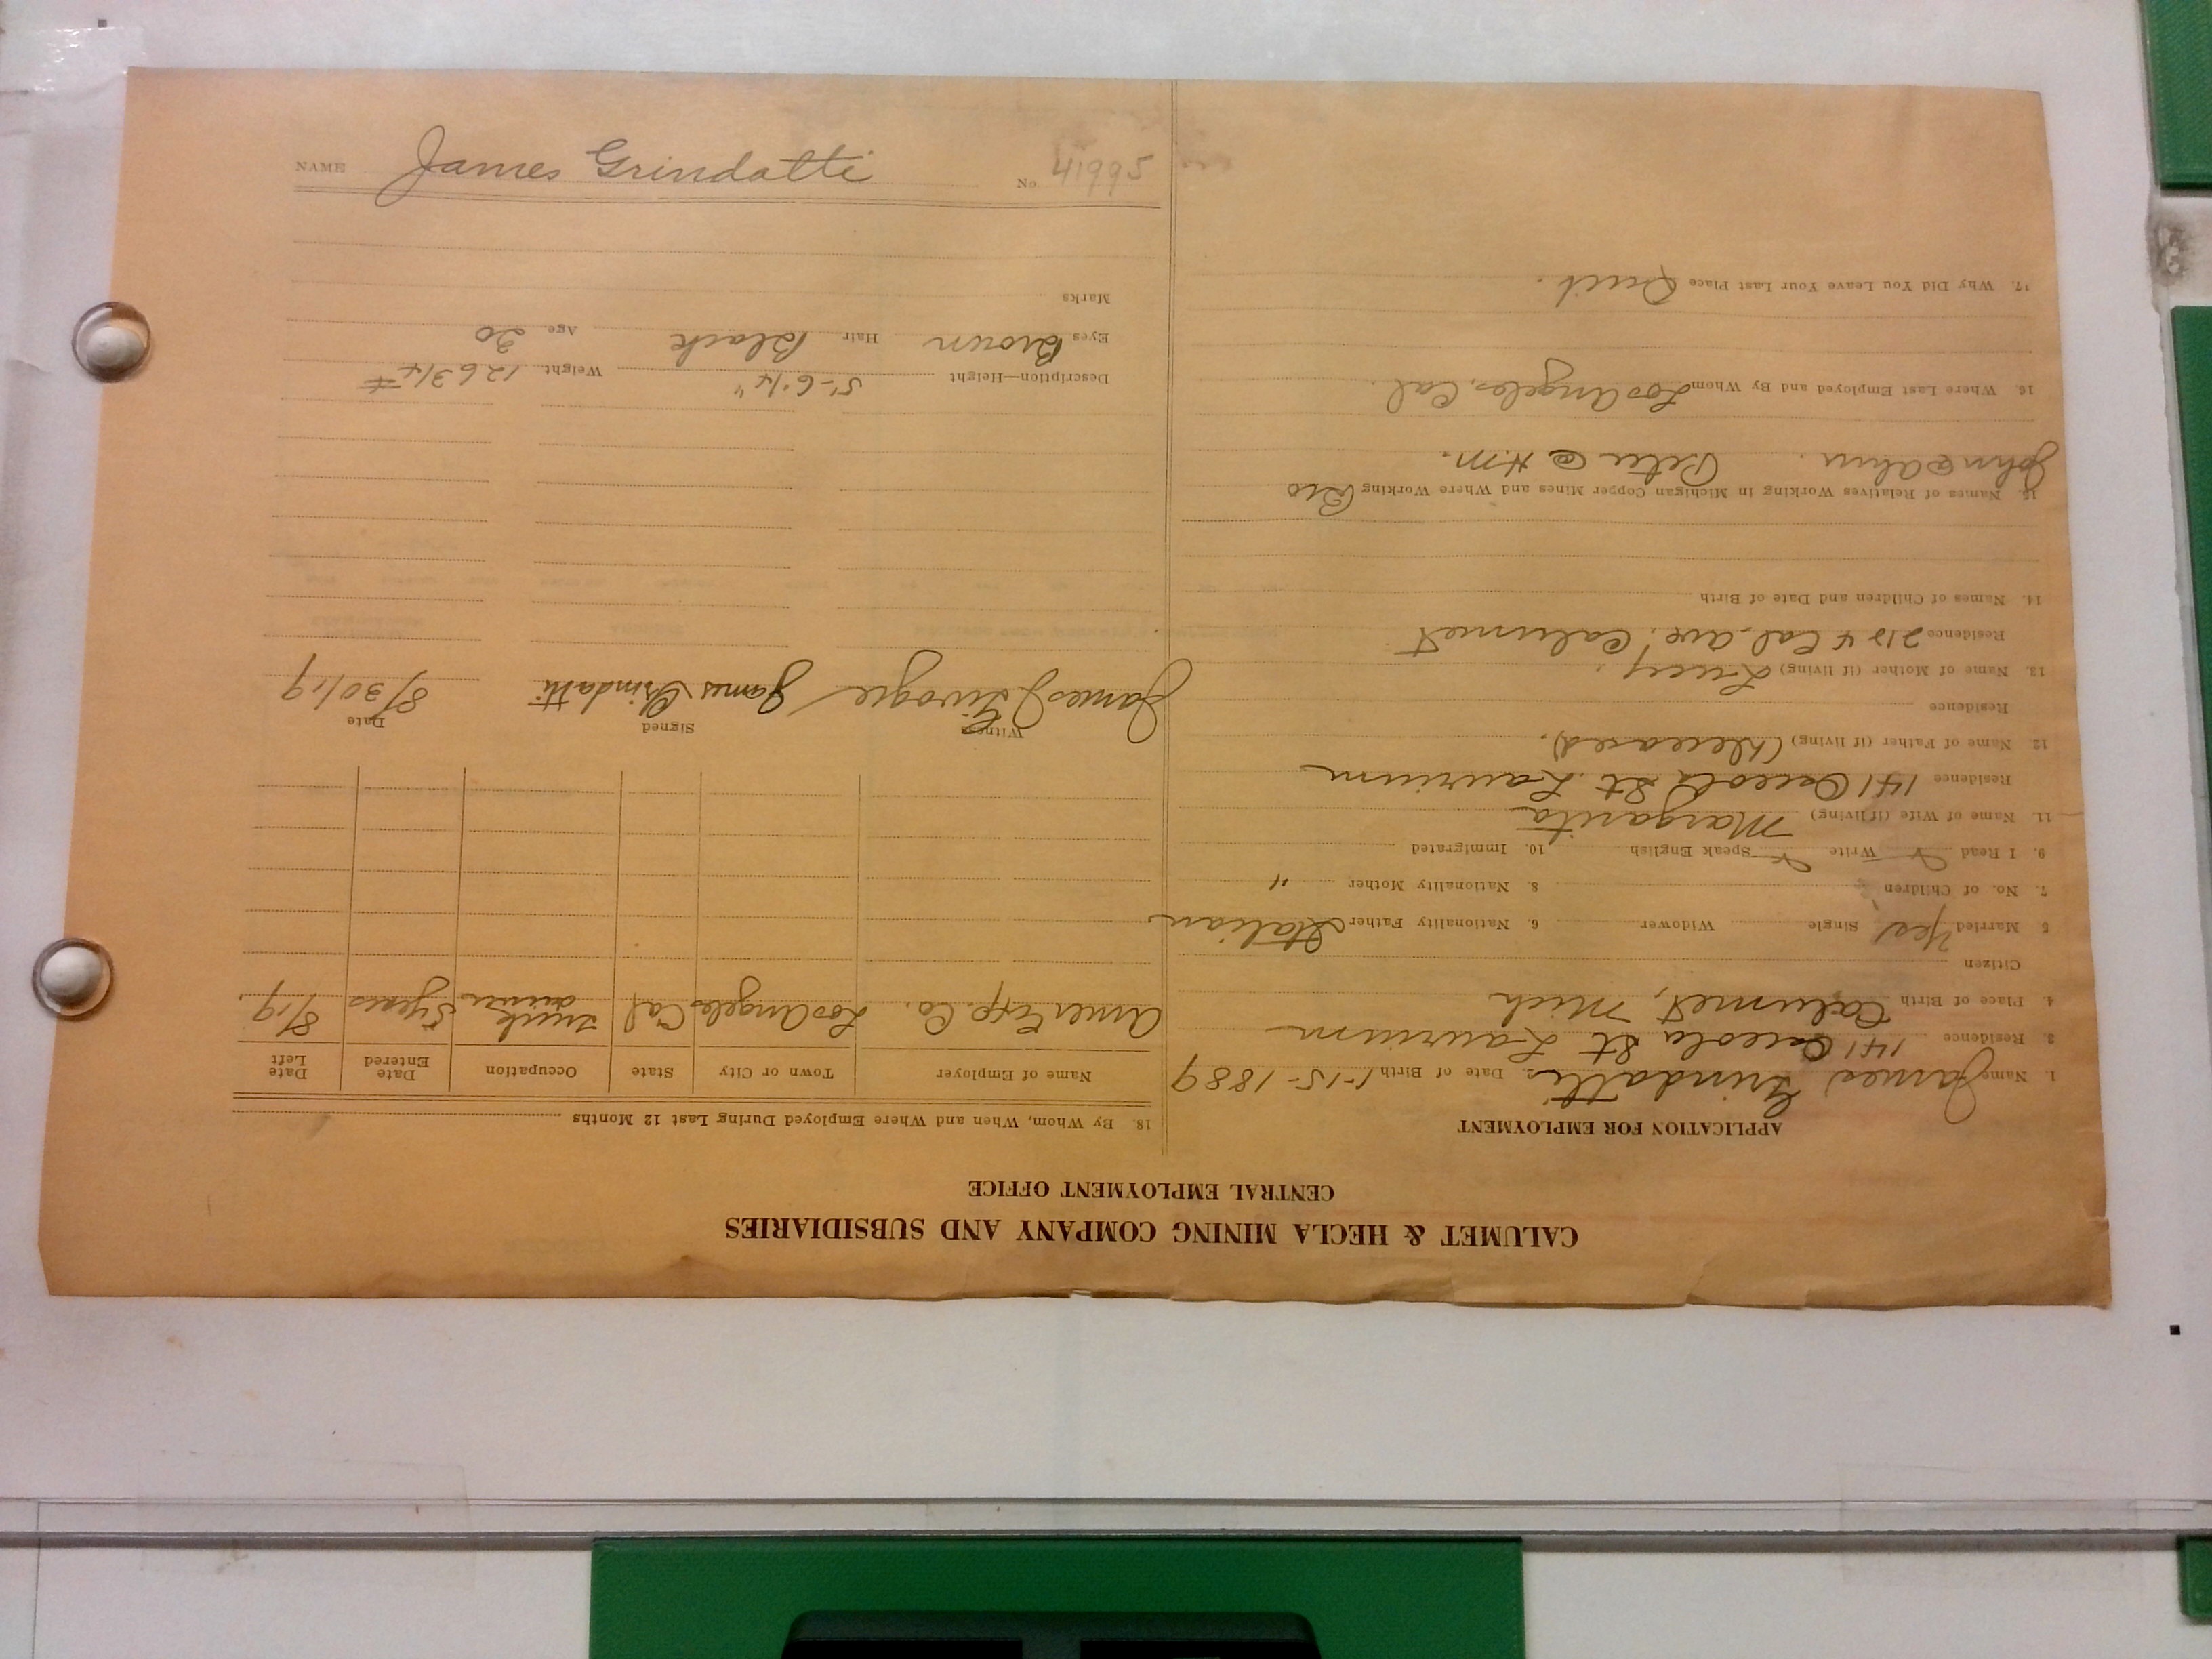 NAME James Grindatti No. 41995
CALUMET & HECLA MINING COMPANY AND SUBSIDIARIES
CENTRAL EMPLOYMENT OFFICE
APPLICATION FOR EMPLOYMENT
1. Name James Grindatti 2. Date of Birth 1-15-1889
3. Residence 141 Osceola St Laurium
4. Place of Birth Calumet, Mich
Citizen
5. Married Yes Single Widower 6. Nationality Father Italian
7. No. of Children 8. Nationality Mother "
9. I Read Write Speak English 10. Immigrated
11. Name of Wife (if living) Margarita
Residence 141 Osceola St. Laurium
12. Name of Father (if living) (Deceased).
Residence
13. Name of Mother (if living) Lucy.
Residence 2184 Cal. ave. Calumet
14. Names of Children and Date of Birth
15. Names of Relatives Working in Michigan Copper Mines and Where Working Bro
John @ Ahm. Peter @ H.M.
16. Where Last Employed and By Whom Los Angeles, Cal.
17. Why Did You Leave Your Last Place Quit.
18. By Whom, When and Where Employed During Last 12 Months
Name of Employer Town or City State Occupation Date Entered Date Left
Amer Exp. Co. Los Angeles Cal truck driver 5 years 8/19.
Witness Signed Date
James James Grindatti 8/30/19
Description—Height 5'-6 1/4" Weight 126 3/4 #
Eyes Brown Hair Black Age 30
Marks